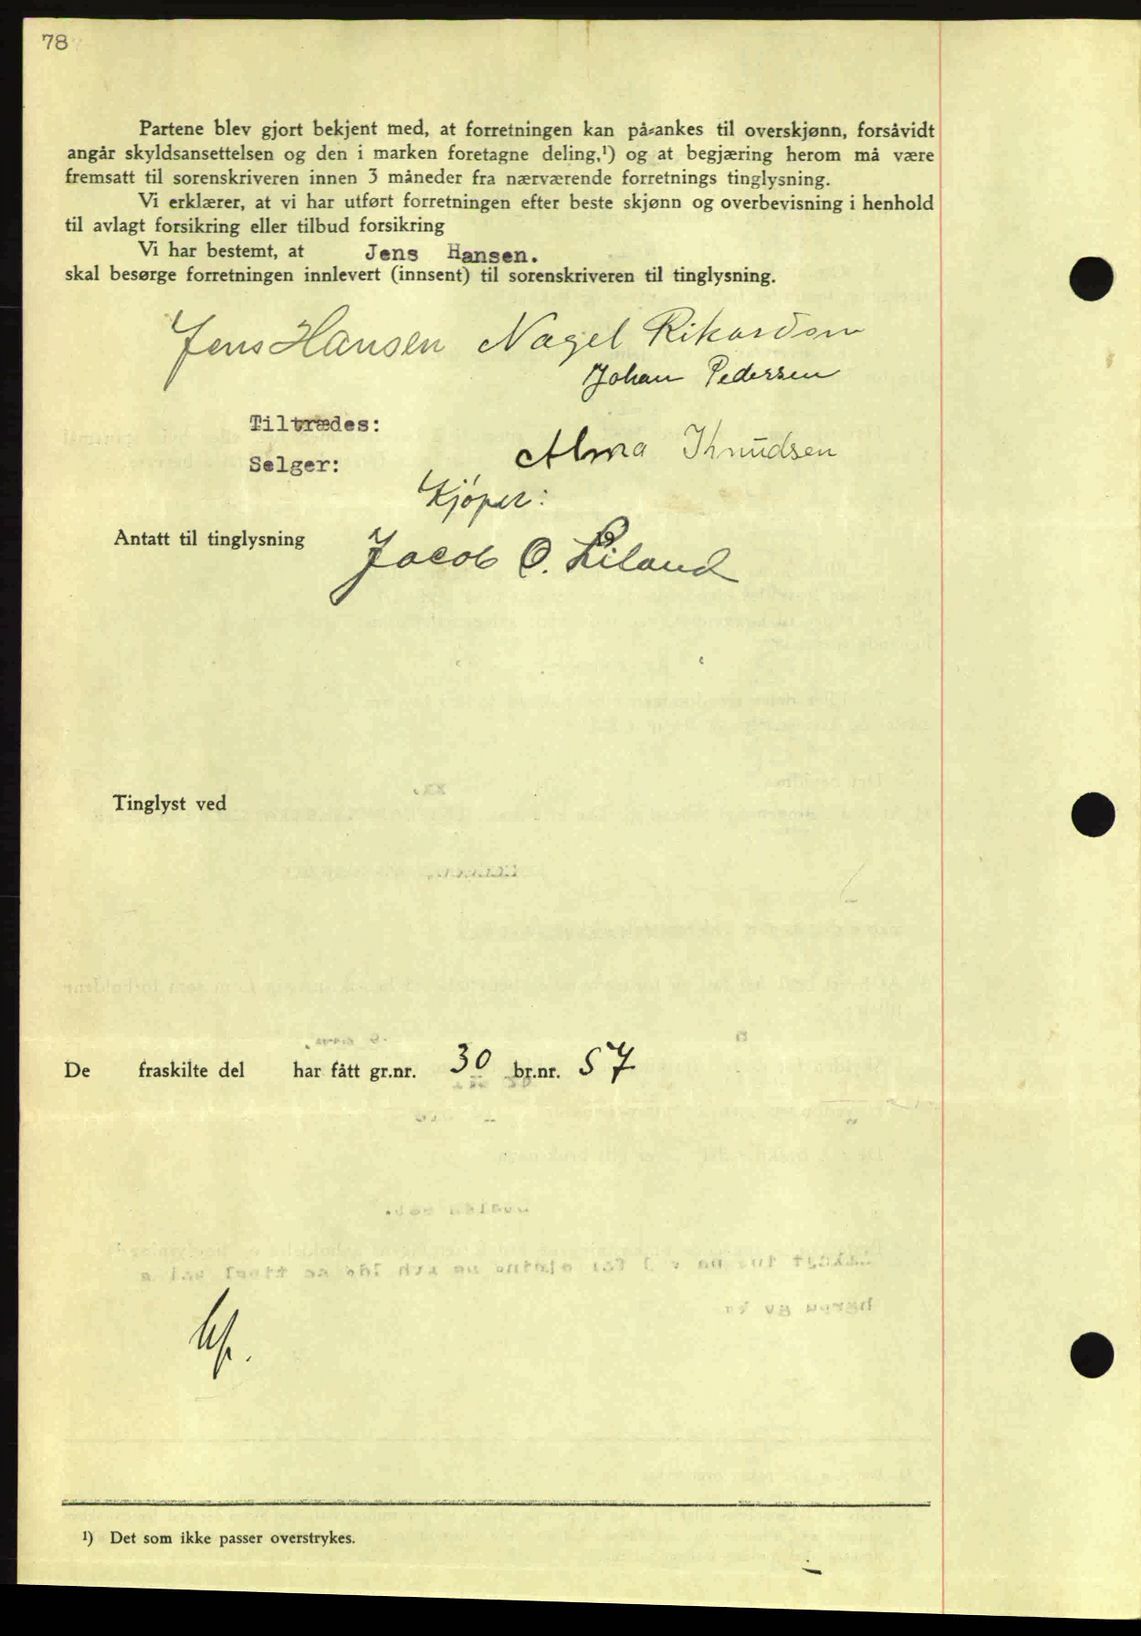 78
Partene blev gjort bekjent med, at forretningen kan på-ankes til overskjønn, forsåvidt
angår skyldsansettelsen og den i marken foretagne deling,¹) og at begjæring herom må være
fremsatt til sorenskriveren innen 3 måneder fra nærværende forretnings tinglysning.
Vi erklærer, at vi har utført forretningen efter beste skjønn og overbevisning i henhold
til avlagt forsikring eller tilbud forsikring
Vi har bestemt, at Jens Hansen.
skal besørge forretningen innlevert (innsent) til sorenskriveren til tinglysning.
Jens Hansen Nagel Rikardsen
Johan Pedersen
Tiltrædes:
Selger: Alma Knudsen
Kjøper:
Antatt til tinglysning 19
Jacob O. Liland
Tinglyst ved
De fraskilte del har fått gr.nr. 30 br.nr. 57
¹) Det som ikke passer overstrykes.